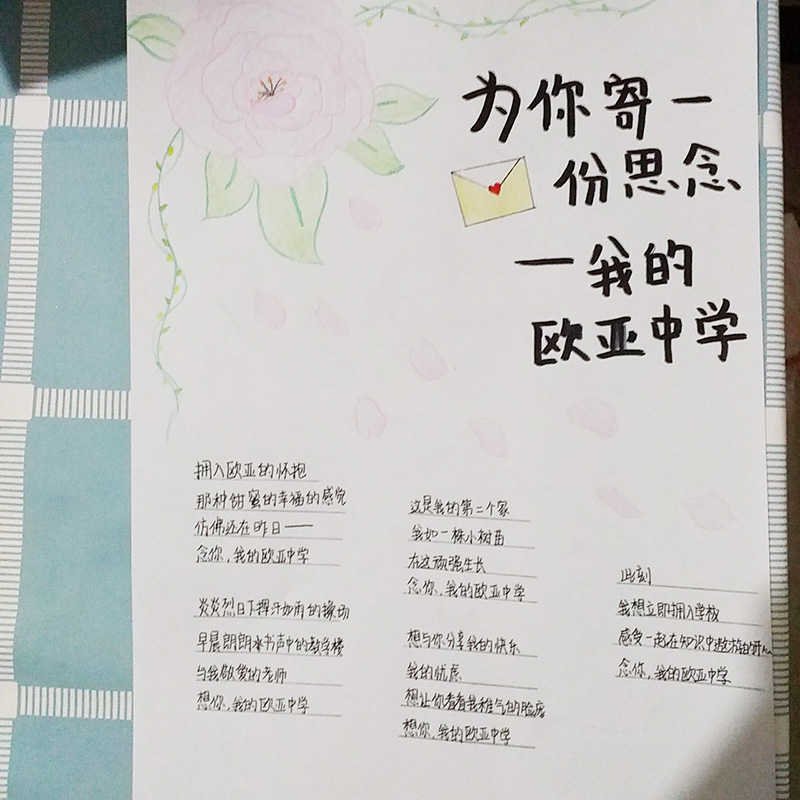 为你寄一
份思念
—我的
欧亚中学
拥入欧亚的怀抱
那种甜蜜的幸福的感觉
仿佛还在昨日——
念你,我的欧亚中学
炎炎烈日下挥汗如雨的操场
早晨朗朗书声中的教学楼
与我敬爱的老师
想你,我的欧亚中学
这是我的第二个家
我如一株小树苗
在这顽强生长
念你,我的欧亚中学
想与你分享我的快乐
我的忧虑
想让你看看我稚气的脸庞
想你,我的欧亚中学
此刻
我想立即拥入学校
感受一起在知识中遨游的
念你,我的欧亚中学